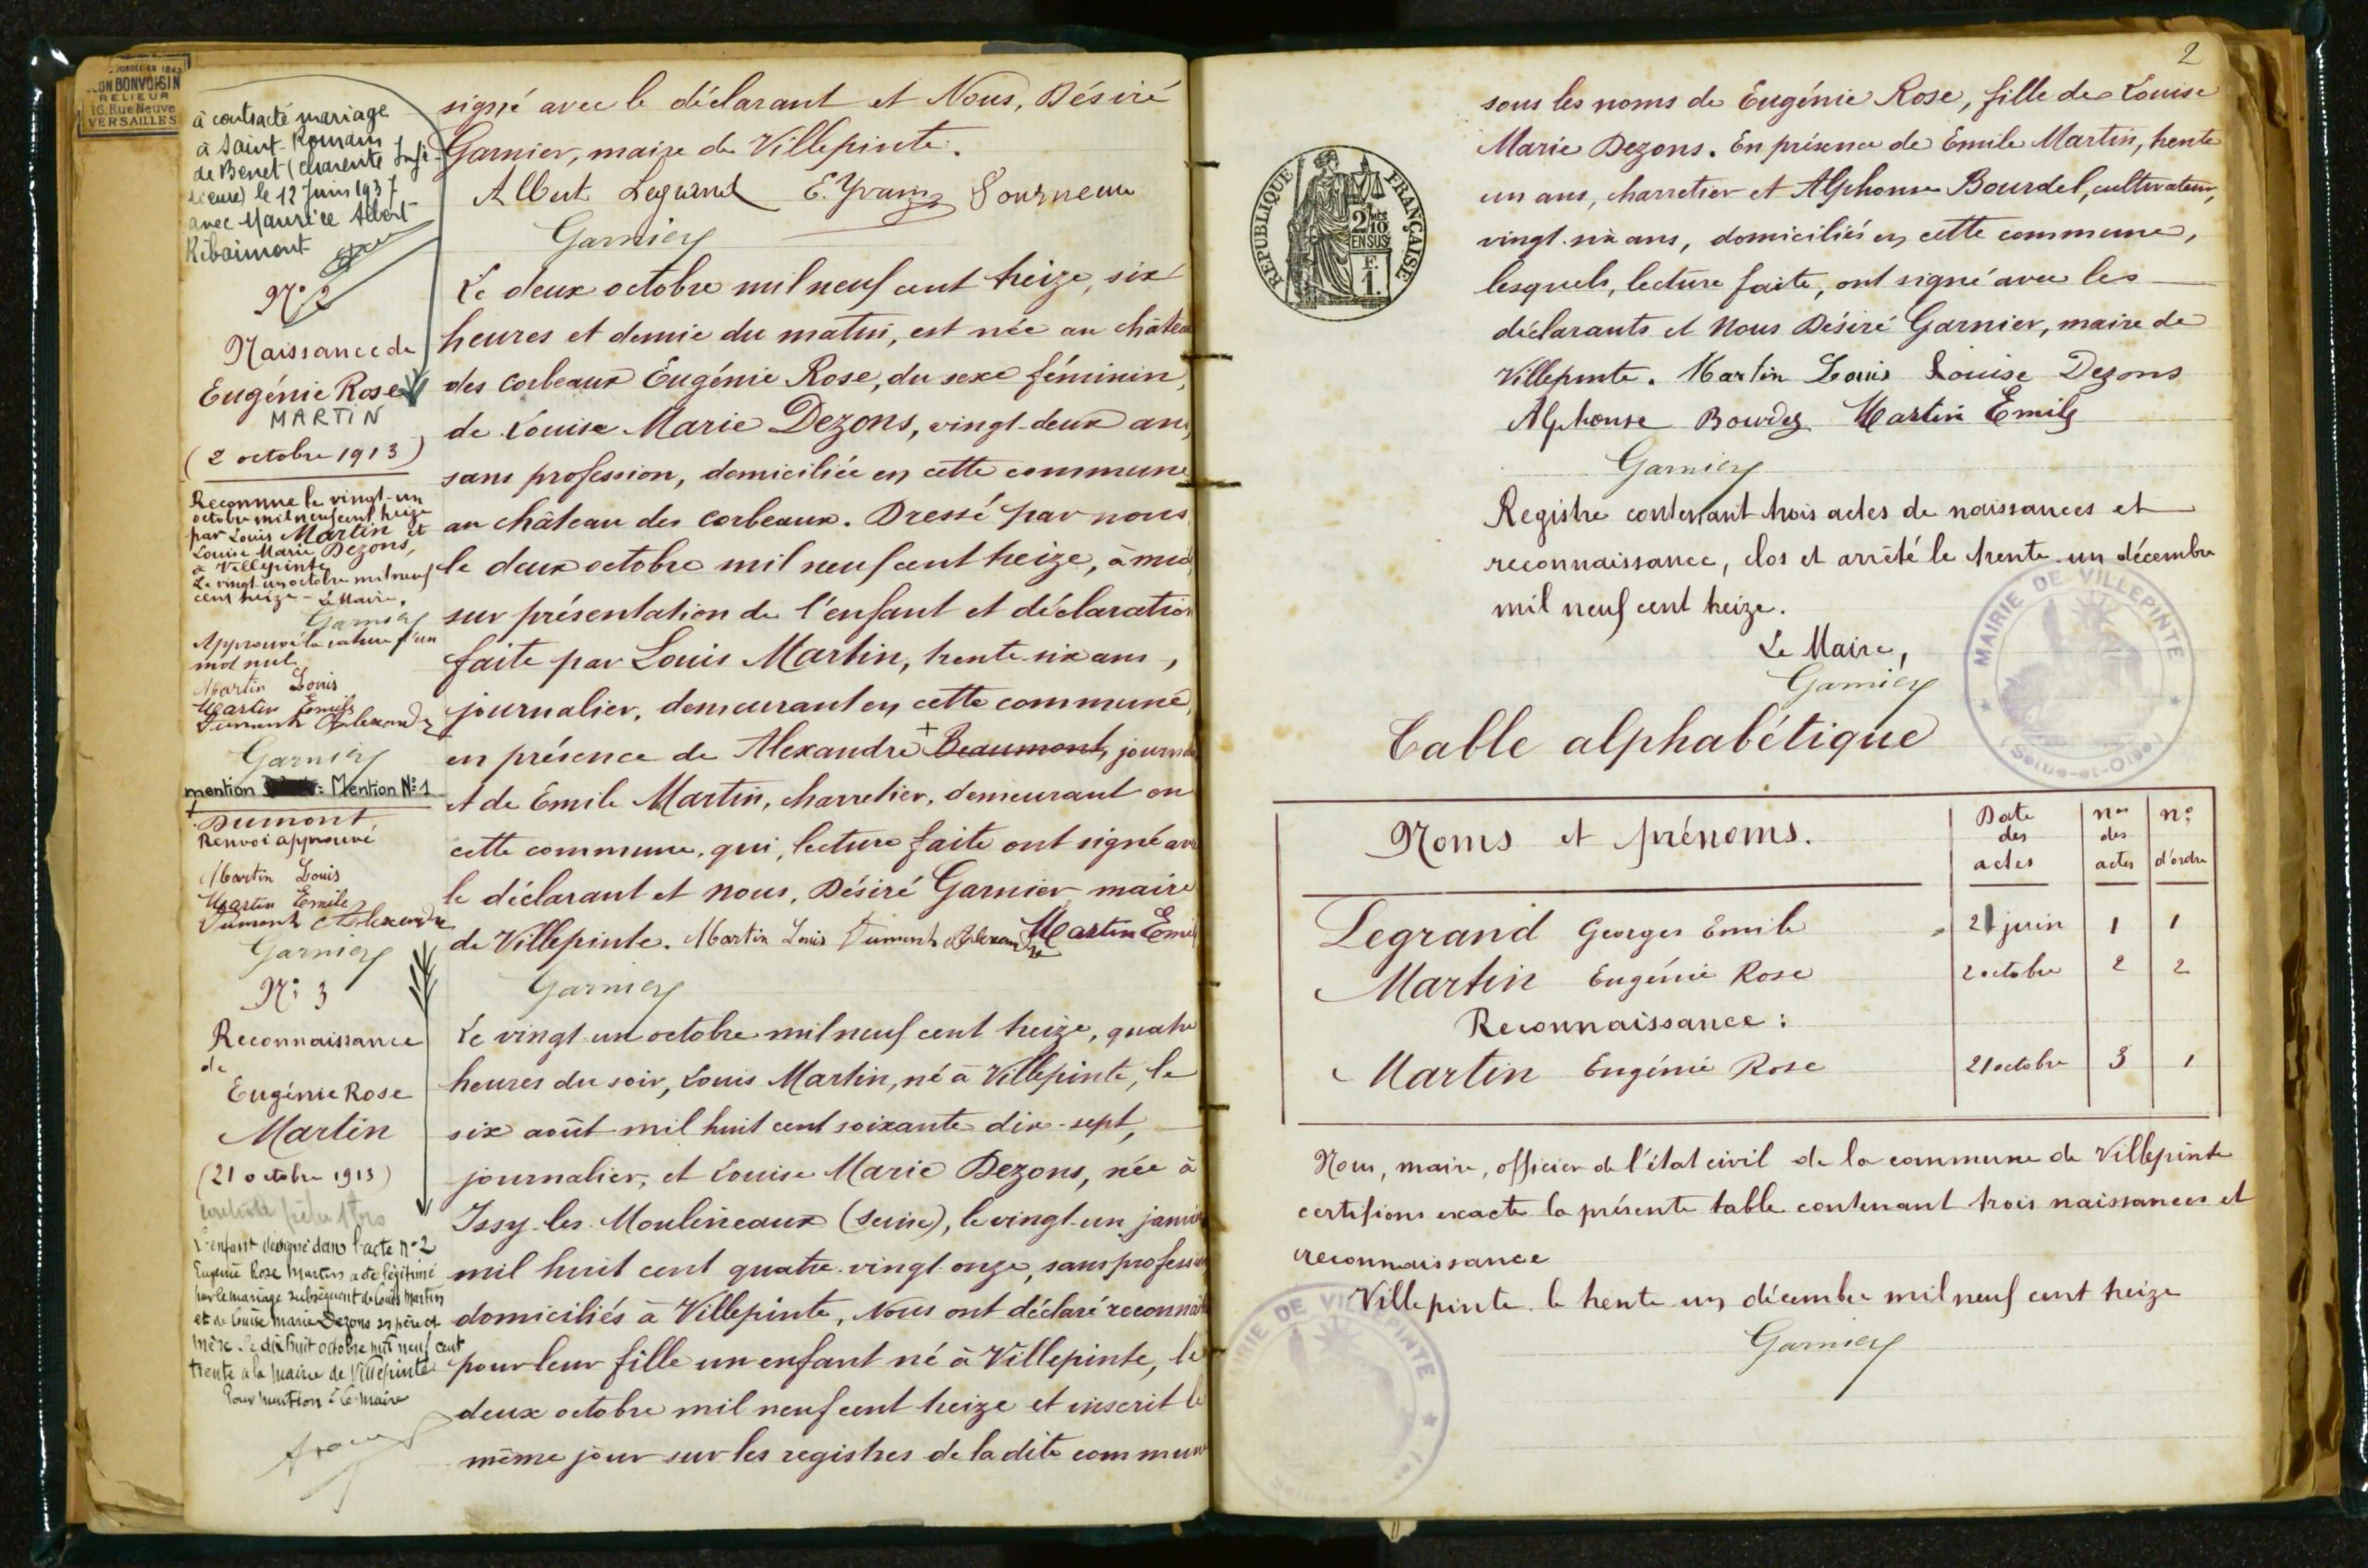 BONVOISIN
RELIEUR
16, Rue Neuve
VERSAILLES
à contracté mariage
à Saint-Romain
de Benet (Charente Infé-
rieure) le 12 Juin 1937
avec Maurice Albert
Ribaimont
signé avec le déclarant et Nous, Désiré
Garnier, maire de Villepinte.
Albert Legrand E. Yvan Fourneau
Garnier
N° 2
Naissance de
Eugénie Rose
MARTIN
(2 octobre 1913)
Reconnue le vingt-un
octobre mil neuf cent treize
par Louis Martin et
Louise Marie Dezons,
à Villepinte
Le vingt un octobre mil neuf
cent treize - Le Maire,
Garnier
Approuvé la rature d'un
mot nul
Martin Louis
Martin Emile
Dumont Alexandre
Garnier
mention : Mention N° 1
+
Dumont
Renvoi approuvé
Martin Louis
Martin Emile
Dumont Alexandre
Garnier
Le deux octobre mil neuf cent treize, six
heures et demie du matin, est née au châtea
des corbeaux Eugénie Rose, du sexe féminin,
de Louise Marie Dezons, vingt-deux ans
sans profession, domiciliée en cette commune
au château des corbeaux. Dressé par nous
le deux octobre mil neuf cent treize, à midi
sur présentation de l'enfant et déclaration
faite par Louis Martin, trente six ans,
journalier, demeurant en cette commune,
en présence de Alexandre + Beaumont, journa
et de Emile Martin, charretier, demeurant en
cette commune, qui, lecture faite ont signé ave
le déclarant et nous, Désiré Garnier maire
de Villepinte. Martin Louis Dumont Alexandre Martin Emi
Garnier
N° 3
Reconnaissance
de
Eugénie Rose
Martin
(21 octobre 1913)
L'enfant désigné dans l'acte n° 2
Eugénie Rose Martin a été légitimé
par le mariage subséquent de Louis Martin
et de Louise Marie Dezons ses père et
mère le dix huit octobre mil neuf cent
trente à la mairie de Villepinte
Pour mention : Le maire
Le vingt un octobre mil neuf cent treize, quatre
heures du soir, Louis Martin, né à Villepinte, le
six août mil huit cent soixante dix-sept,
journalier, et Louise Marie Dezons, née à
Issy-les-Moulineaux (Seine), le vingt-un janvie
mil huit cent quatre-vingt-onze, sans profession
domiciliés à Villepinte, Nous ont déclaré reconnait
pour leur fille un enfant né à Villepinte, le
deux octobre mil neuf cent treize et inscrit le
même jour sur les registres de la dite commune
2
RÉPUBLIQUE FRANÇAISE
2/10 EN SUS
F. 1.
sous les noms de Eugénie Rose, fille de Louise
Marie Dezons. En présence de Emile Martin, trente
un ans, charretier et Alphonse Bourdel, cultivateur,
vingt-six ans, domiciliés en cette commune,
lesquels, lecture faite, ont signé avec les
déclarants et Nous Désiré Garnier, maire de
Villepinte. Martin Louis Louise Dezons
Alphonse Bourdel Martin Emile
Garnier
Registre contenant trois actes de naissances et
reconnaissance, clos et arrêté le trente-un décembre
mil neuf cent treize.
Le Maire,
Garnier
MAIRIE DE VILLEPINTE
(Seine-et-Oise)
Table alphabétique
Noms et prénoms. Date des actes nos des actes no d'ordre
Legrand Georges Emile 21 juin 1 1
Martin Eugénie Rose 2 octobre 2 2
Reconnaissance :
Martin Eugénie Rose 21 octobre 3 1
Nous, maire, officier de l'état civil de la commune de Villepinte
certifions exacte la présente table contenant trois naissances et
reconnaissance
Villepinte le trente un décembre mil neuf cent treize
Garnier
MAIRIE DE VILLEPINTE